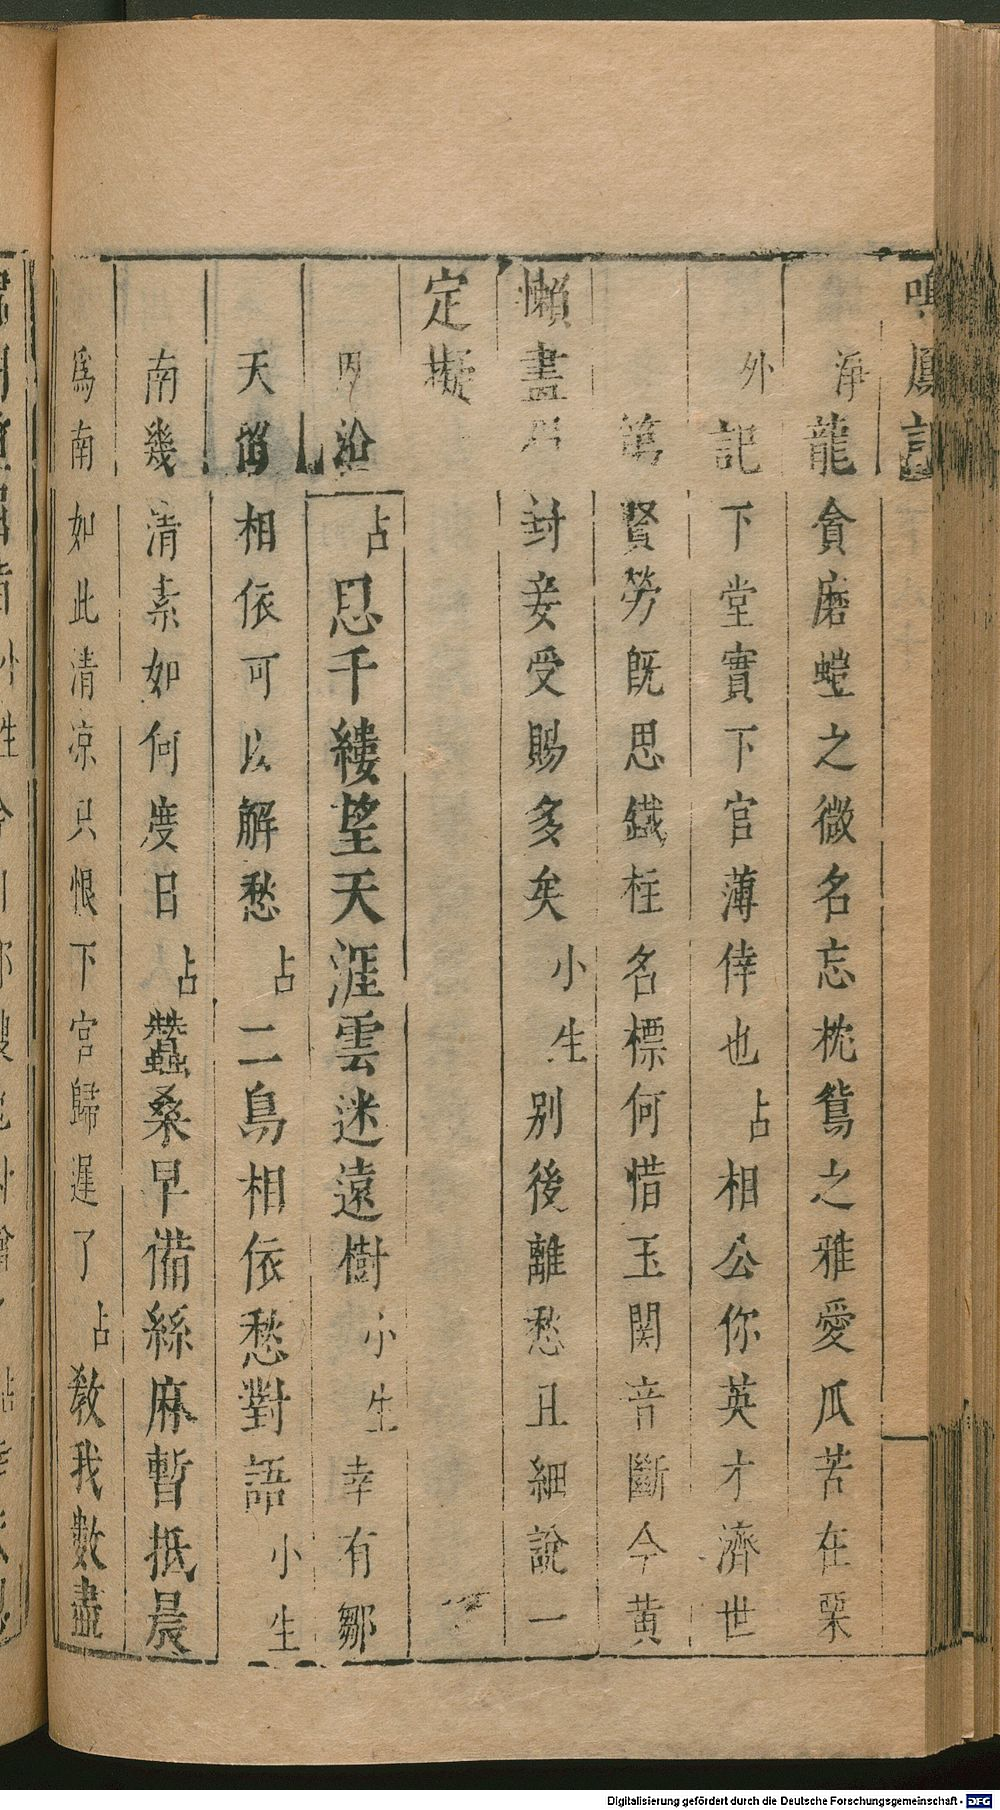 鳴鳳記
淨 龍貪磨螘之微名忘枕鴛之雅愛瓜苦在栗
外 記下堂實下官薄倖也 占 相公你英才濟世
賢勞既思鐵柱名標何惜玉関音斷今黄
懶畫 封妾受賜多矣 小生 别後離愁且細說一
定擬
占 思千縷望天涯雲迷遠樹 小生 幸有鄒
天 相依可以解愁 占 二鳥相依愁對語 小生
南幾清素如何度日 占 蠶桑早備絲麻暫抵晨
爲南如此清凉只恨下官歸遲了 占 教我數盡
Digitalisierung gefördert durch die Deutsche Forschungsgemeinschaft - DFG